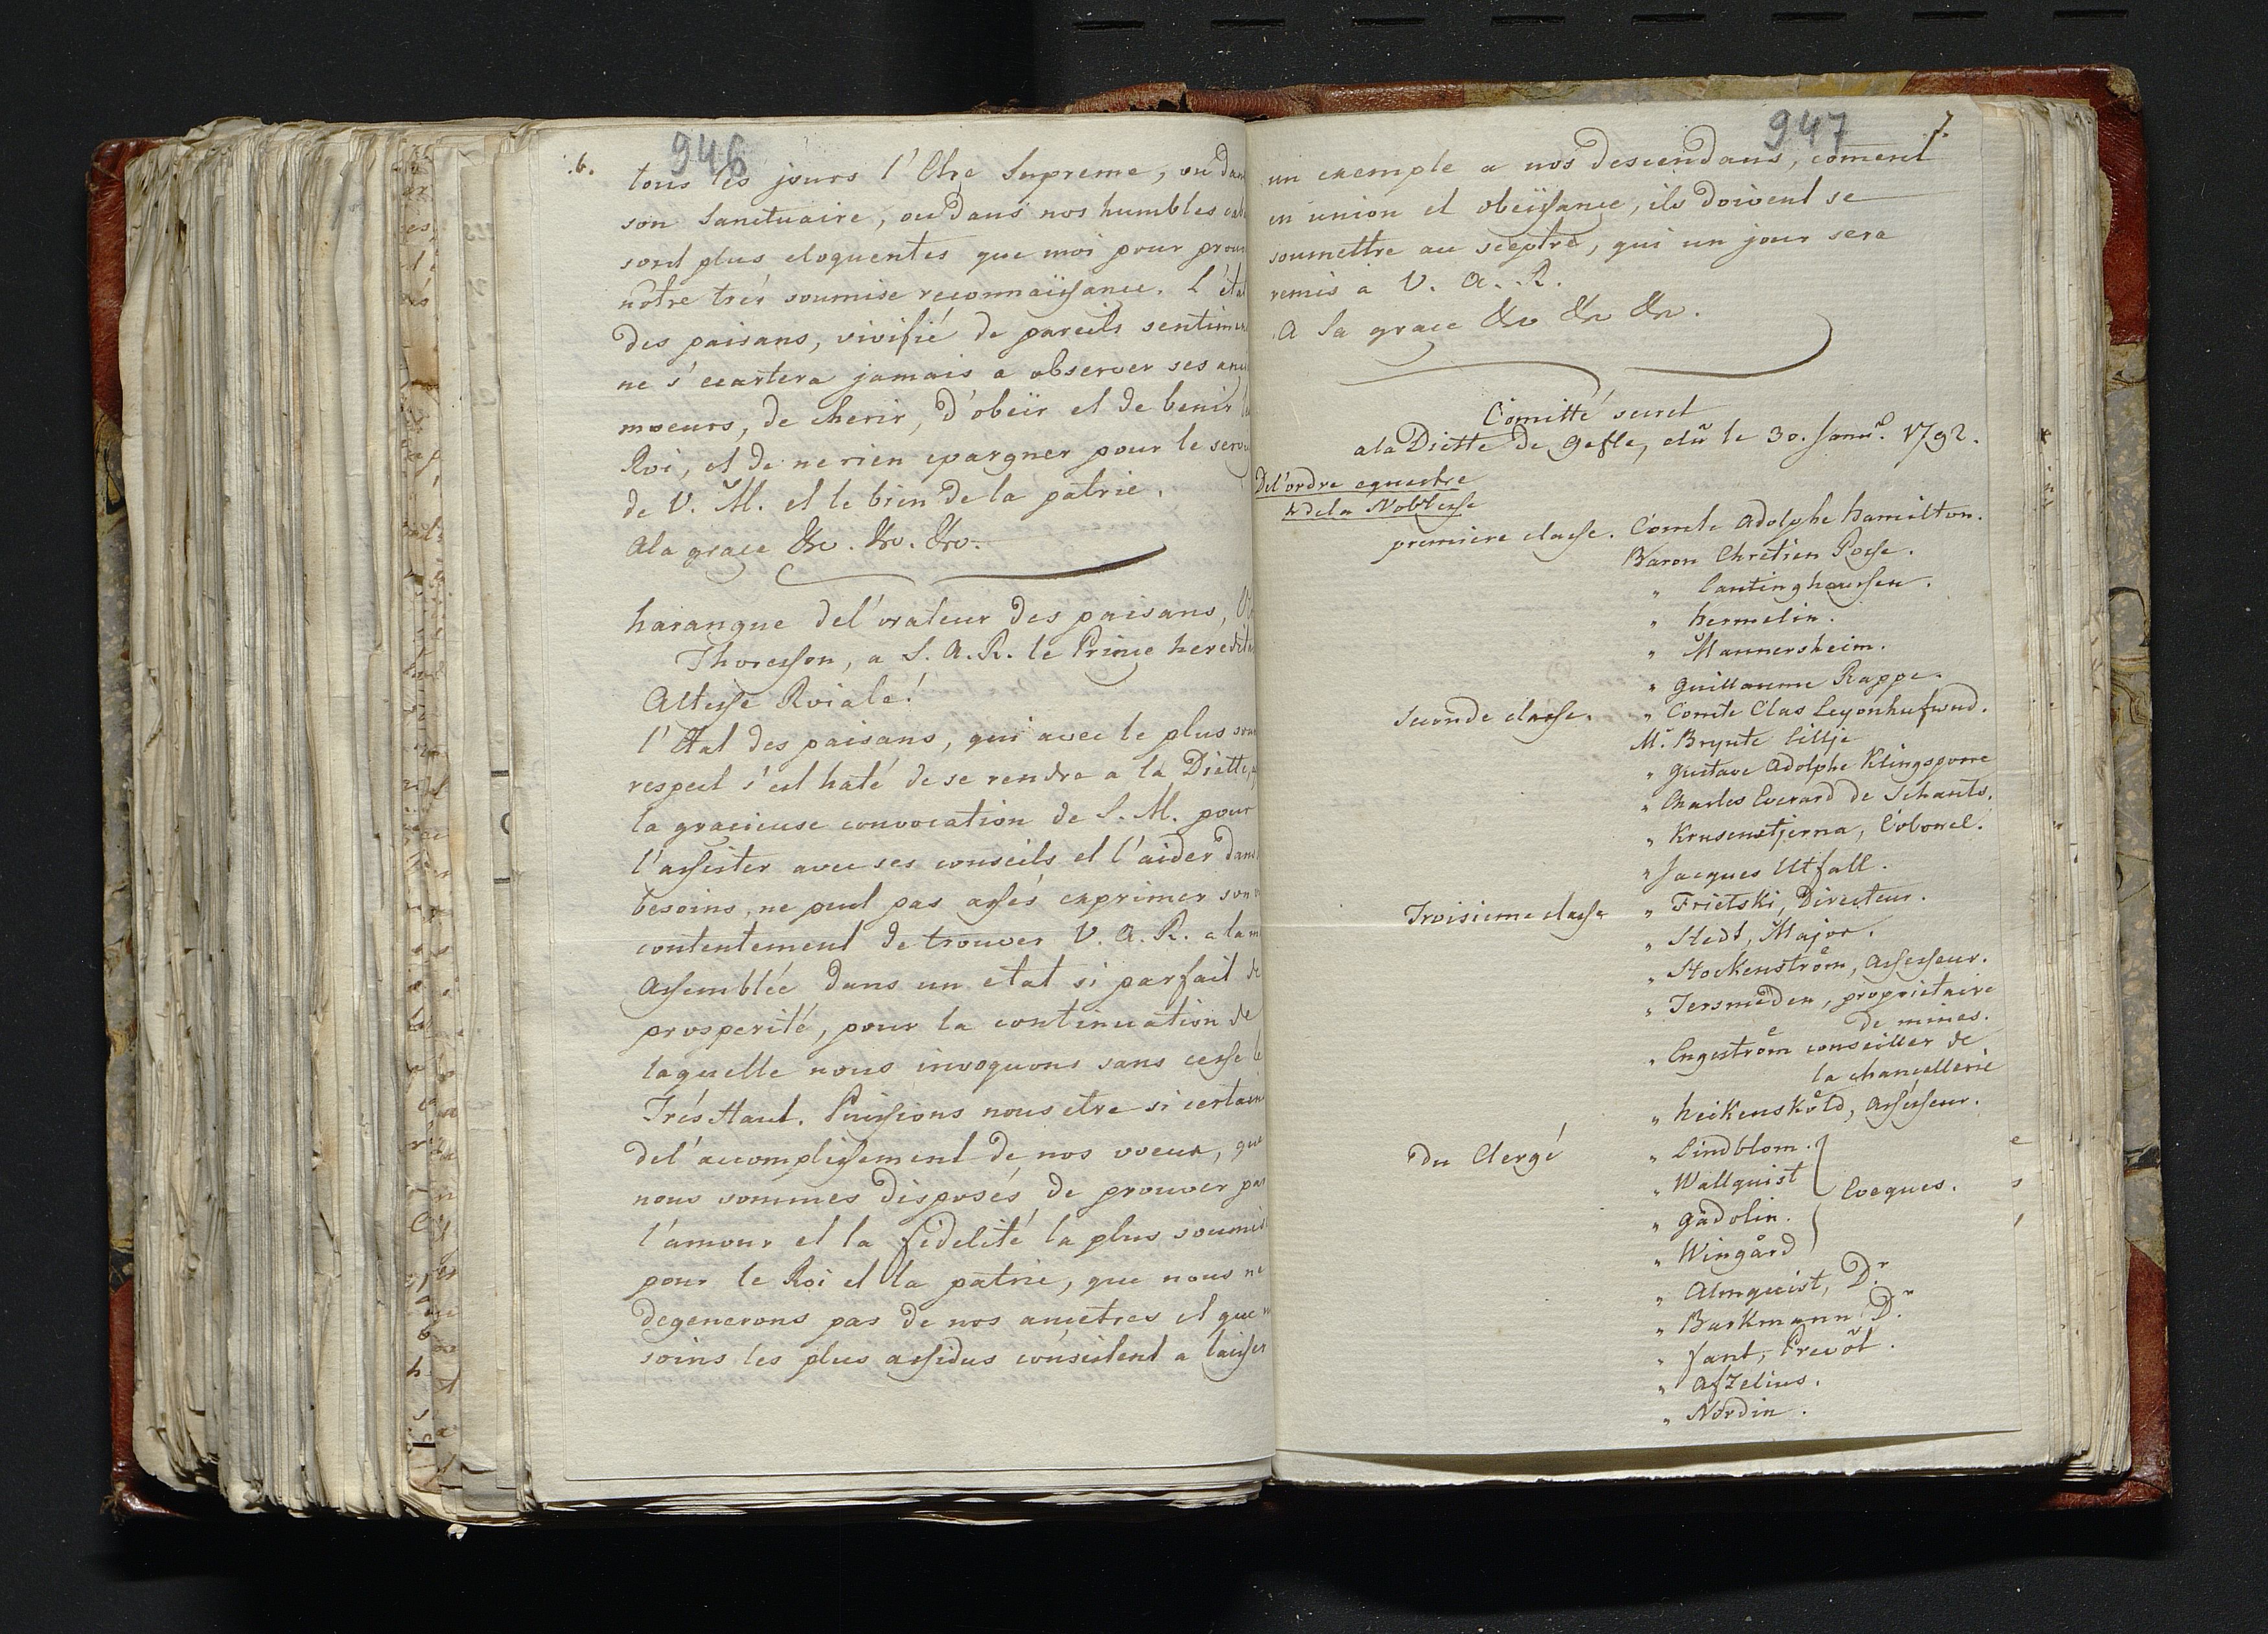 946
.6.
tous les jours l'Etre Supreme, ou dans
son Sanctuaire, ou dans nos humbles
sont plus eloquentes que moi pour
nôtre très soumise reconnaissance. L'état
des paisans, vivifié de pareils sentimens
ne s'ecartera jamais a observer ses
moeurs, de cherir, d'obeïr et de benir
Roi, et de ne rien epargner pour le
de V. M. et le bien de la patrie.
A la grace &c. &c. &c.
harangue de l'orateur des paisans,
Thoresson, a S. A. R. le Prince
Altesse Roiale!
l'Etat des paisans, qui avec le plus
respect s'est haté de se rendre a la Diette,
la gracieuse convocation de S. M. pour
l'assister avec ses conseils et l'aider dans
besoins, ne peut pas assés exprimer son
contentement de trouver V. A. R. a la
Assemblée dans un etat si parfait de
prosperité, pour la continuation de
laquelle nous invoquons sans cesse le
Très Haut. Puissions nous etre si certains
de l'accomplissement de nos voeux, que
nous sommes disposés de prouver par
l'amour et la fidelité la plus soumise
pour le Roi et la patrie, que nous ne
degenerons pas de nos ancetres et que
soins les plus assidus consistent a laisser
947
7.
un exemple a nos descendans, coment
en union et obeïssance, ils doivent se
soumettre au sceptre, qui un jour sera
remis à V. A. R.
A la grace &c &c &c.
Comitté secret
a la Diette de Gefle, elu le 30. Janv. 1792.
De l'ordre equestre
& de la Noblesse
premiere classe. Comte Adolphe Hamilton.
Baron Chrétien Posse.
" Cantinghaussen.
" Hermelin.
" Mannersheim.
" Guillaume Rappe.
Seconde classe. " Comte Clas Leyonhufwud.
Mr. Brynte Lillje
" Gustave Adolphe Klingsporre
" Charles Everard de Schants.
" Krusenstjerna, Colonel.
" Jacques Utfall.
Troisieme classe " Frietski, Directeur.
" Stedt, Major.
" Stockenström, Assesseur.
" Jersmeden, proprietaire
de mines.
" Engeström conseiller de
la chancellerie
" Heikensköld, Assesseur.
Du Clergé " Lindblom.
" Wallquist
Eveques.
" Gadolin.
" Wingård
" Almquist, Dr.
" Barkmann Dr.
" Fant, Prevôt.
" Afzelius.
" Nordin.